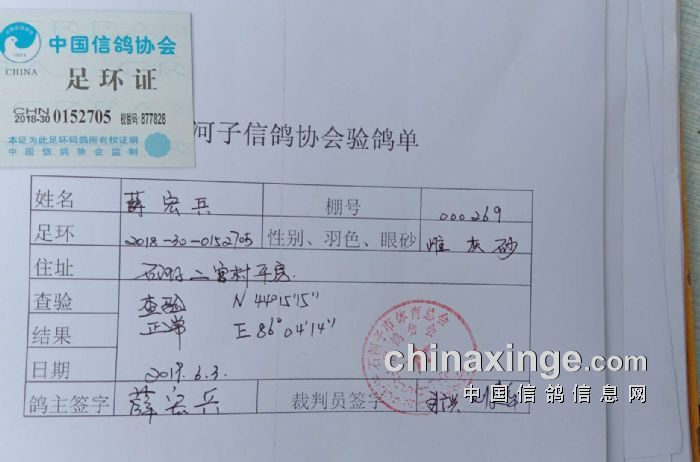 中国信鸽协会
CHINA
足环证
CHN
2018-30 0152705 校验码:877828
本证为此足环码鸽所有权证明
中国信鸽协会监制
河子信鸽协会验鸽单
姓名 薛宏兵 棚号 000269
足环 2018-30-0152705 性别、羽色、眼砂 雌灰砂
住址 石河子二宫村平房.
查验 查验 N 44°15'15"
结果 正常 E 86°04'14"
日期 2019.6.3.
石河子市体育总会
信鸽协会
鸽主签字 薛宏兵 裁判员签字
chinaxinge.com
中国信鸽信息网